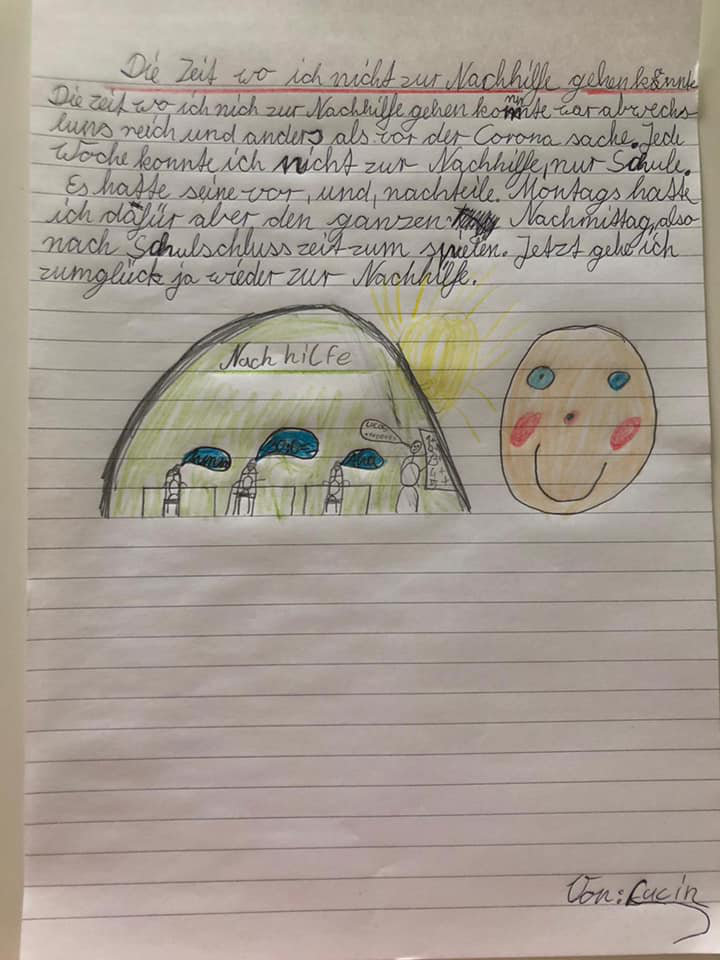 Die Zeit wo ich nicht zur Nachhilfe gehen konnte
Die zeit wo ich nich zur Nachhilfe gehen konnte war abwechs-
luns reich und anders als vor der Corona sache. Jede
Woche konnte ich nicht zur Nachhilfe, nur Schule.
Es hatte seine vor, und, nachteile. Montags hatte
ich dafür aber den ganzen Nachmittag, also
nach Schulschluss zeit zum spielen. Jetzt gehe ich
zumglück ja wieder zur Nachhilfe.
Nachhilfe
Von: Lucin